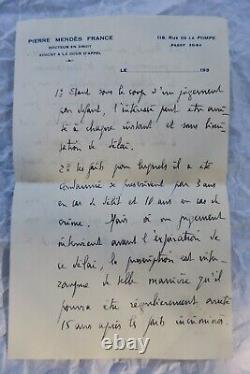 PIERRE MENDÈS FRANCE
DOCTEUR EN DROIT
AVOCAT A LA COUR D'APPEL
118, RUE DE LA POMPE
PASSY
LE 193
1º Etant sous le coup d'un jugement
par défaut, l'intéressé peut être arrêté
à chaque instant et sans limi-
tation de délai.
2º Les faits pour lesquels il a été
condamné se prescrivent par 3 ans
en cas de délit et 10 ans en cas de
crime. Mais si un jugement
intervient avant l'expiration de
ce délai, la prescription est inter-
rompue de telle manière qu'il
pourra être régulièrement arrêté
15 ans après les faits incriminés.